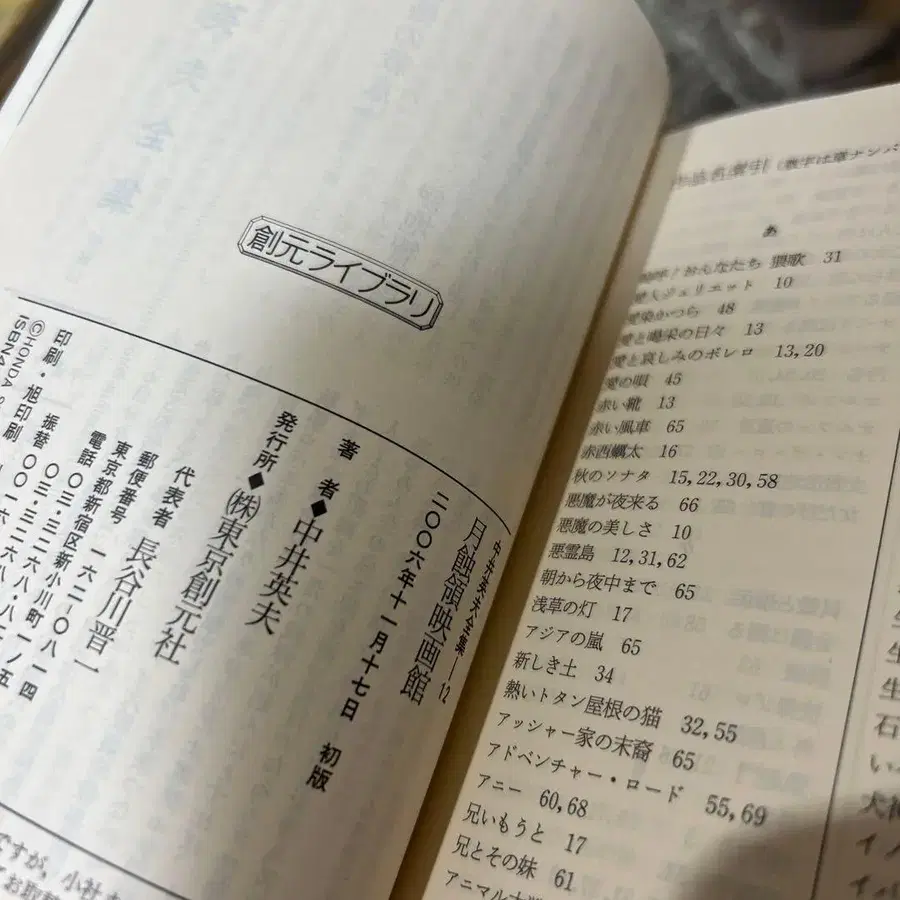 創元ライブラリ
中井英夫全集—12
月蝕領映画館
二〇〇六年十一月十七日 初版
著者◆中井英夫
発行所◆㈱東京創元社
代表者 長谷川晋一
郵便番号 一六二-〇八一四
東京都新宿区新小川町一ノ五
電話 〇三・三二六八・八二
振替 〇〇一六
印刷・旭印刷
©HONDA
ISBN4
ですが、小社
作品名索引（数字は章ナンバ
あ
おんなたち 猥歌 31
愛人ジュリエット 10
愛染かつら 48
愛と喝采の日々 13
愛と哀しみのボレロ 13,20
愛の唄 45
赤い靴 13
赤い風車 65
赤西蠣太 16
秋のソナタ 15,22,30,58
悪魔が夜来る 66
悪魔の美しさ 10
悪霊島 12,31,62
朝から夜中まで 65
浅草の灯 17
アジアの嵐 65
新しき土 34
熱いトタン屋根の猫 32,55
アッシャー家の末裔 65
アドベンチャー・ロード 55,69
アニー 60,68
兄いもうと 17
兄とその妹 61
アニマル大
生
生
石
い
犬神
イ